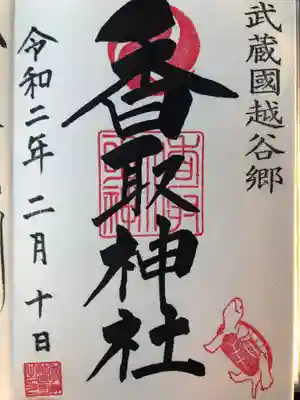 武蔵國越谷郷
香取神社
令和二年二月十日